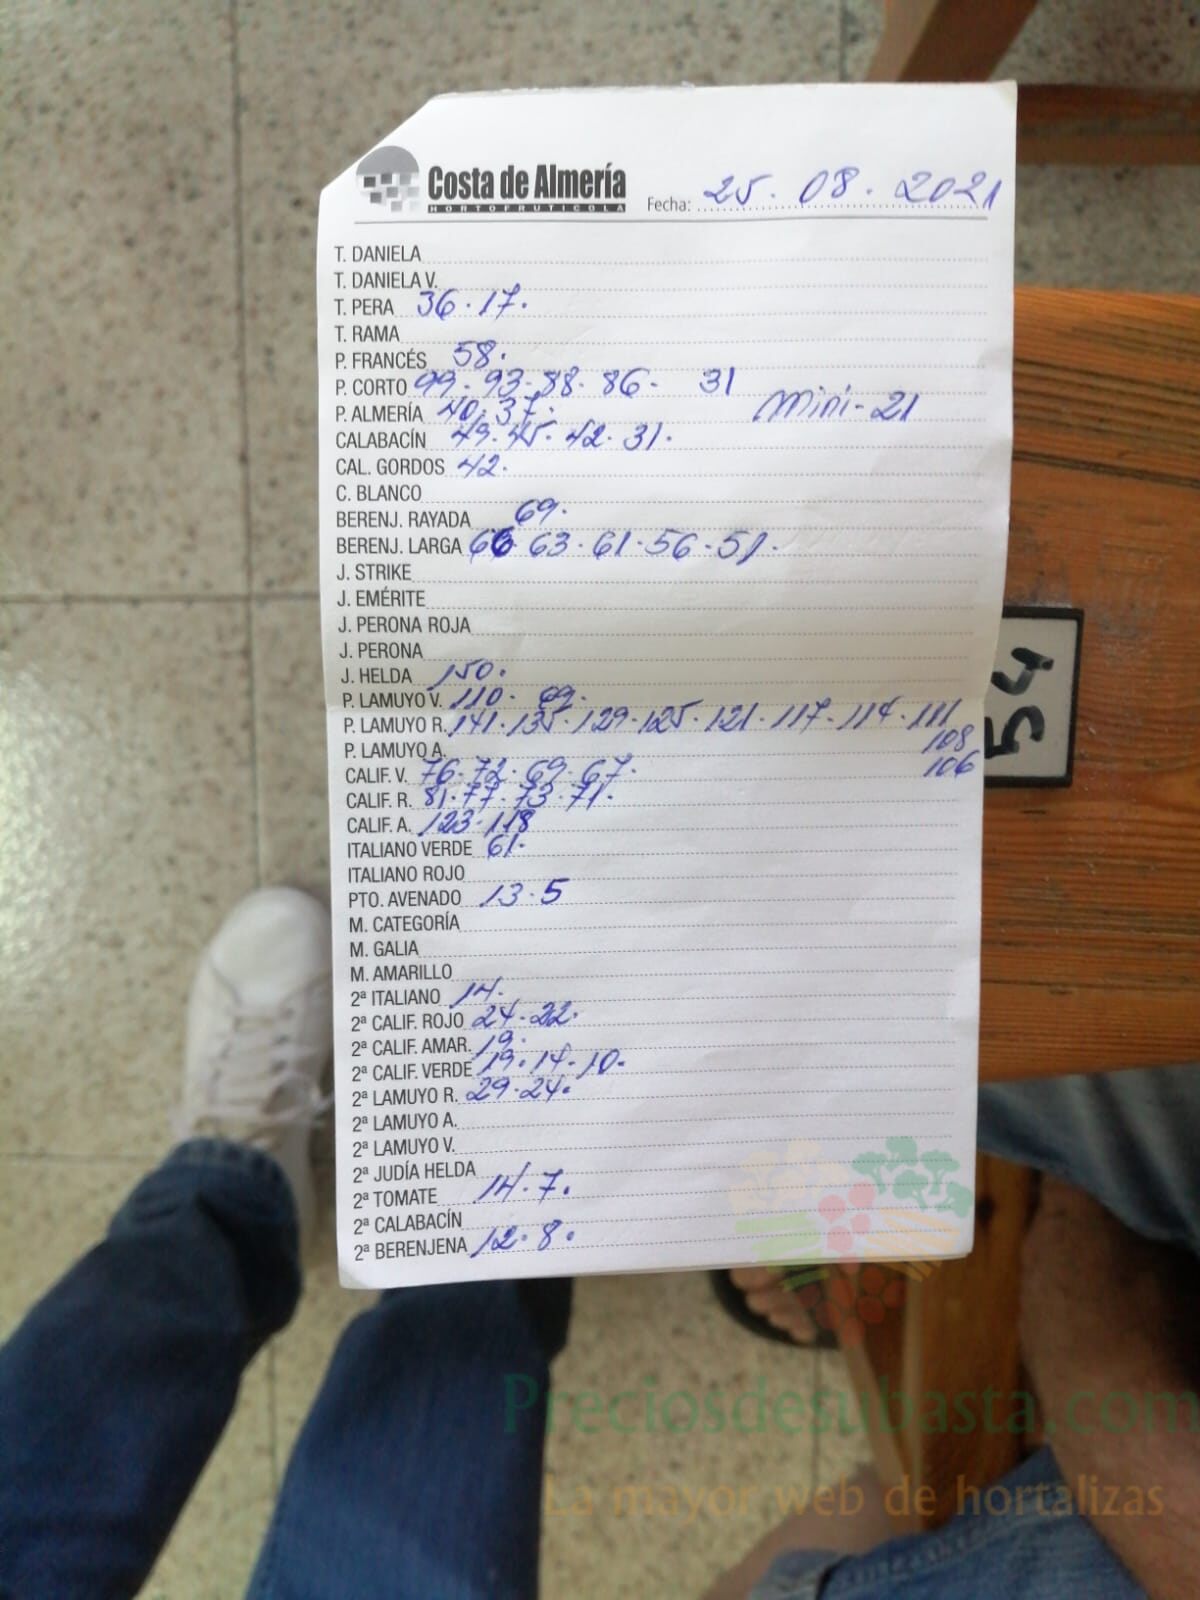 Costa de Almería
HORTOFRUTICOLA
Fecha: 25.08.2021
T. DANIELA
T. DANIELA V.
T. PERA 36.17.
T. RAMA
P. FRANCÉS 58.
P. CORTO 99.93.88.86. 31
P. ALMERÍA 40.37. mini-21
CALABACÍN 49.45.42.31.
CAL. GORDOS 42.
C. BLANCO
BERENJ. RAYADA 69.
BERENJ. LARGA 66.63.61.56.51.
J. STRIKE
J. EMÉRITE
J. PERONA ROJA
J. PERONA
J. HELDA 150.
P. LAMUYO V. 110. 69.
P. LAMUYO R. 141.135.129.125.121.117.114.111
P. LAMUYO A. 108
CALIF. V. 76.72.69.67. 106
CALIF. R. 81.77.73.71.
CALIF. A. 123.118
ITALIANO VERDE 61.
ITALIANO ROJO
PTO. AVENADO 13.5
M. CATEGORÍA
M. GALIA
M. AMARILLO
2ª ITALIANO 14.
2ª CALIF. ROJO 24.22.
2ª CALIF. AMAR. 19.
2ª CALIF. VERDE 19.14.10.
2ª LAMUYO R. 29.24.
2ª LAMUYO A.
2ª LAMUYO V.
2ª JUDÍA HELDA
2ª TOMATE 14.7.
2ª CALABACÍN
2ª BERENJENA 12.8.
54
Preciosdesubasta.com
La mayor web de hortalizas